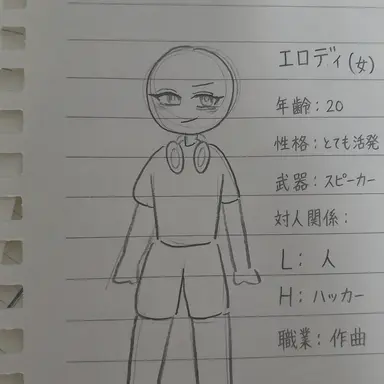 エロディ(女)
年齢:20
性格:とても活発
武器:スピーカー
対人関係:
L:人
H:ハッカー
職業:作曲